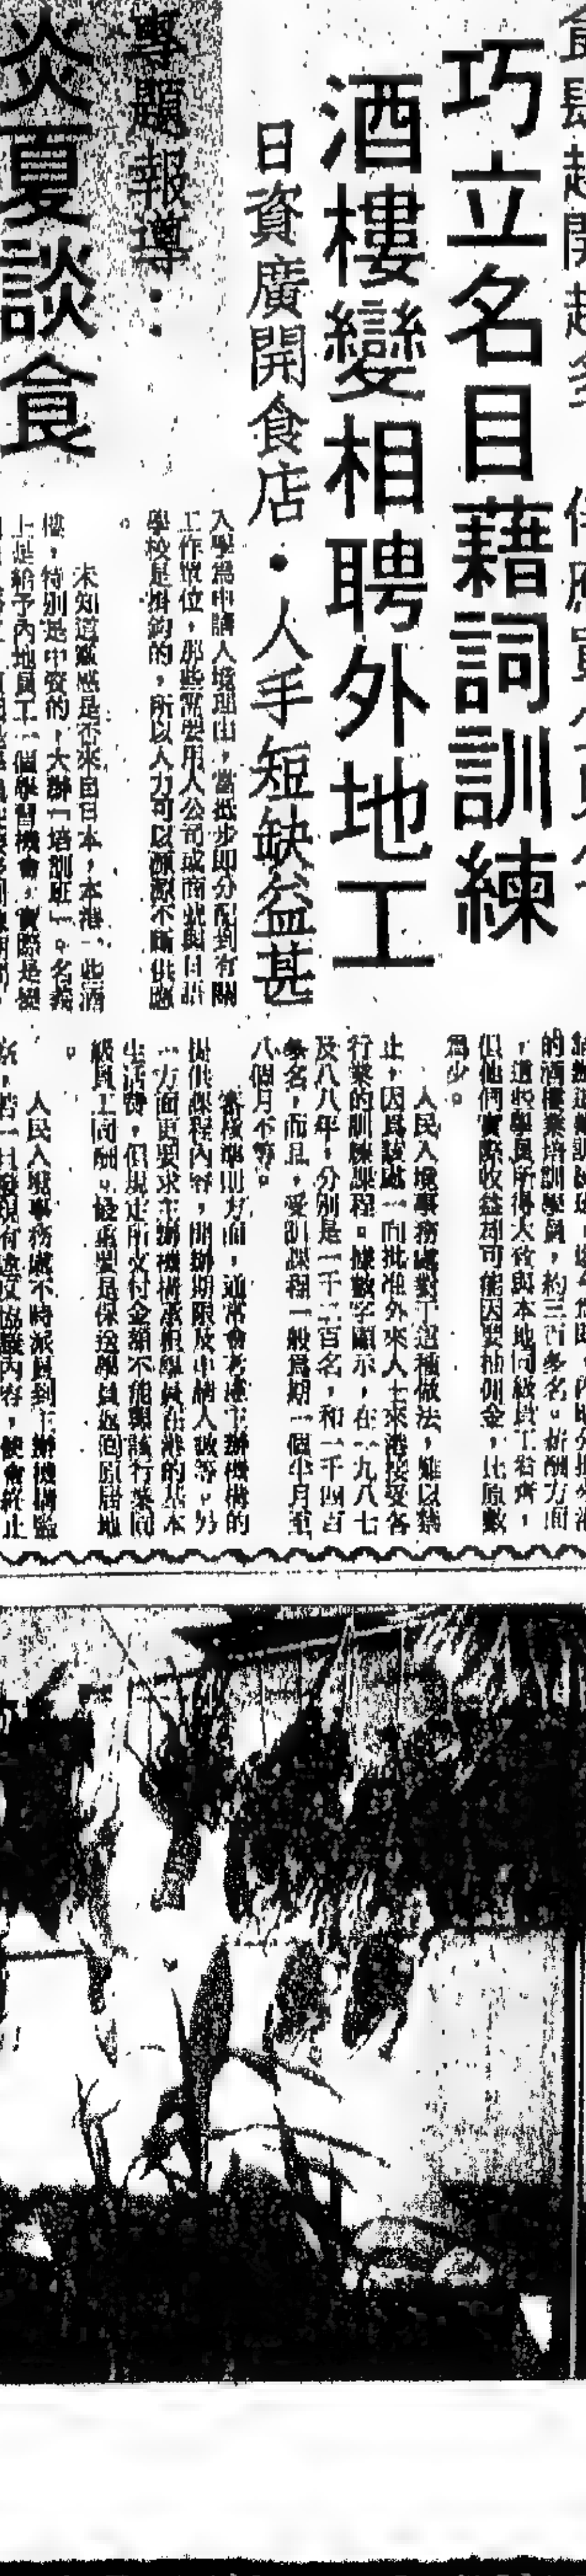 巧立名目藉詞訓練
酒樓變相聘外地工
日資廣開食店・人手短缺益甚
專題報導：
炎夏談食
入學為申請入境理由，當抵步即分配到有關
工作單位，那些需要用人公司或商業與日語
學校是掛鈎的，所以人力可以源源不斷供應
。
未知道靈感是否來自日本，本港一些酒
樓，特別是中資的，大辦「培訓班」。名義
上是給予內地員工一個學習機會，實際是變
的酒樓業培訓學員，約三百多名。薪酬方面
，這些學員所得大致與本地同級員工看齊，
但他們實際收益卻可能因要抽佣金，比原數
為少。
人民入境事務處對於這種做法，難以禁
止，因為該處一向批准外來人士來港接受各
行業的訓練課程。據數字顯示，在一九八七
及八八年，分別是一千二百名，和一千四百
多名，而且，受訓課程一般為期一個半月至
八個月不等。
審核準則方面，通常會考慮主辦機構的
提供課程內容，開辦期限及申請人數等，另
一方面更要求主辦機構承担學員在港的基本
生活費，但規定所支付金額不能與該行業同
級員工同酬。最重要是保送學員返回原居地
。
人民入境事務處不時派員到主辦機構臨
若一旦發現有違反協議內容，便會終止